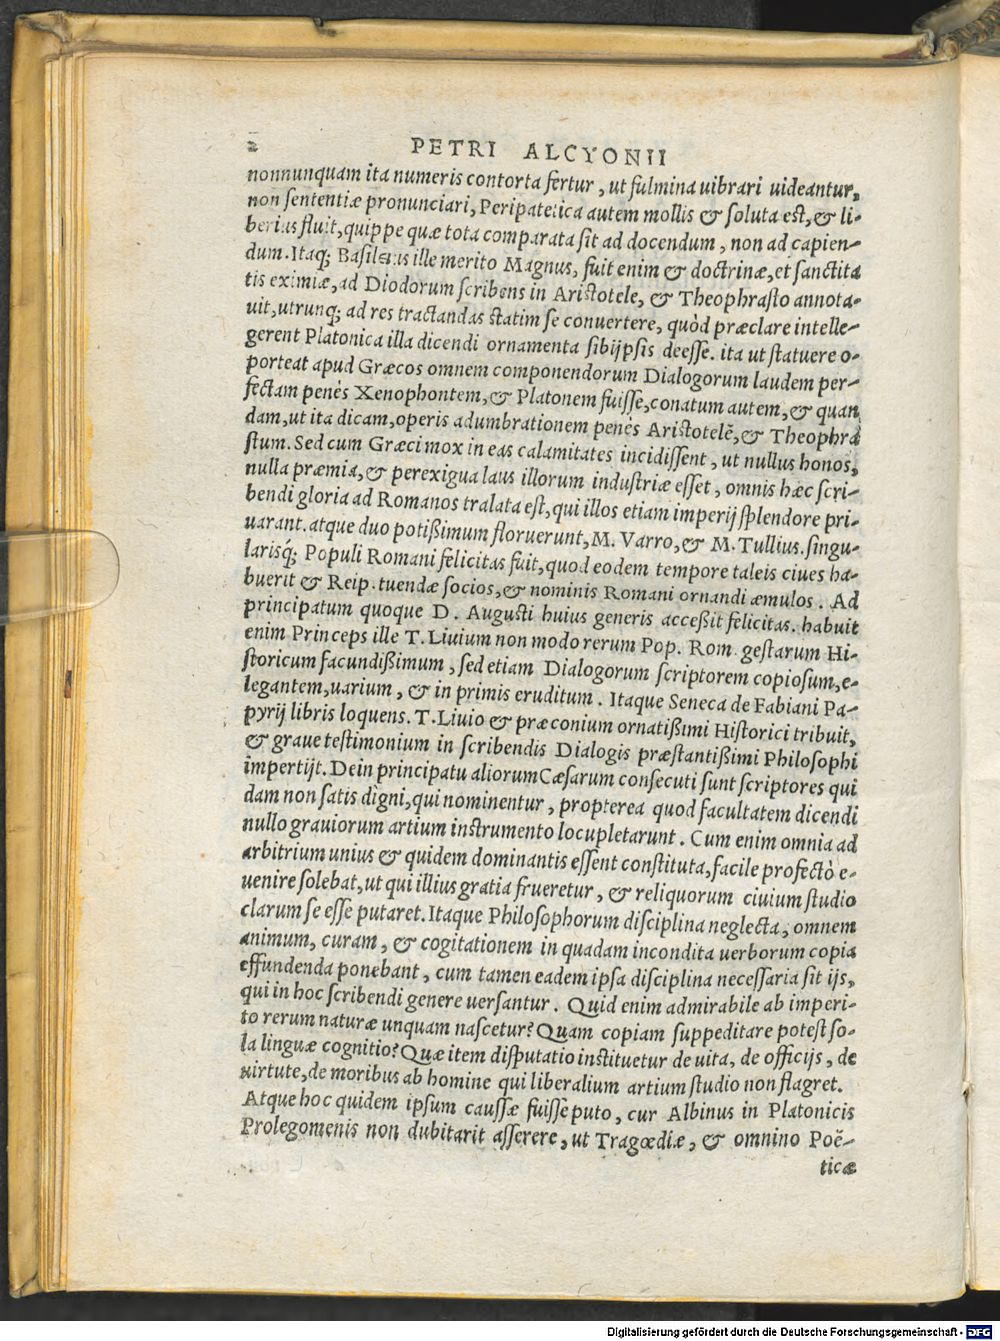 2 PETRI ALCYONII
nonnunquam ita numeris contorta fertur, ut fulmina uibrari uideantur,
non sententiæ pronunciari, Peripatetica autem mollis & soluta est, & li-
berius fluit, quippe quæ tota comparata sit ad docendum, non ad capien-
dum. Itaq; Basileius ille merito Magnus, fuit enim & doctrinæ, et sanctita
tis eximiæ, ad Diodorum scribens in Aristotele, & Theophrasto annota-
uit, utrunq; ad res tractandas statim se conuertere, quòd præclare intelle-
gerent Platonica illa dicendi ornamenta sibijpsis deesse. ita ut statuere o-
porteat apud Græcos omnem componendorum Dialogorum laudem per-
fectam penès Xenophontem, & Platonem fuisse, conatum autem, & quan
dam, ut ita dicam, operis adumbrationem penès Aristotelē, & Theophra
stum. Sed cum Græci mox in eas calamitates incidissent, ut nullus honos,
nulla præmia, & perexigua laus illorum industriæ esset, omnis hæc scri-
bendi gloria ad Romanos tralata est, qui illos etiam imperij splendore pri-
uarant. atque duo potißimum floruerunt, M. Varro, & M. Tullius. singu-
larisq́; Populi Romani felicitas fuit, quod eodem tempore taleis ciues ha-
buerit & Reip. tuendæ socios, & nominis Romani ornandi æmulos. Ad
principatum quoque D. Augusti huius generis acceßit felicitas. habuit
enim Princeps ille T. Liuium non modo rerum Pop. Rom. gestarum Hi-
storicum facundißimum, sed etiam Dialogorum scriptorem copiosum, e-
legantem, uarium, & in primis eruditum. Itaque Seneca de Fabiani Pa-
pyrij libris loquens. T. Liuio & præconium ornatißimi Historici tribuit,
& graue testimonium in scribendis Dialogis præstantißimi Philosophi
impertijt. Dein principatu aliorum Cæsarum consecuti sunt scriptores qui
dam non satis digni, qui nominentur, propterea quod facultatem dicendi
nullo grauiorum artium instrumento locupletarunt. Cum enim omnia ad
arbitrium unius & quidem dominantis essent constituta, facile profectò e-
uenire solebat, ut qui illius gratia frueretur, & reliquorum ciuium studio
clarum se esse putaret. Itaque Philosophorum disciplina neglecta, omnem
animum, curam, & cogitationem in quadam incondita uerborum copia
effundenda ponebant, cum tamen eadem ipsa disciplina necessaria sit ijs,
qui in hoc scribendi genere uersantur. Quid enim admirabile ab imperi-
to rerum naturæ unquam nascetur? Quam copiam suppeditare potest so-
la linguæ cognitio? Quæ item disputatio instituetur de uita, de officijs, de
uirtute, de moribus ab homine qui liberalium artium studio non flagret.
Atque hoc quidem ipsum caussæ fuisse puto, cur Albinus in Platonicis
Prolegomenis non dubitarit asserere, ut Tragœdiæ, & omnino Poë-
ticæ
Digitalisierung gefördert durch die Deutsche Forschungsgemeinschaft - DFG